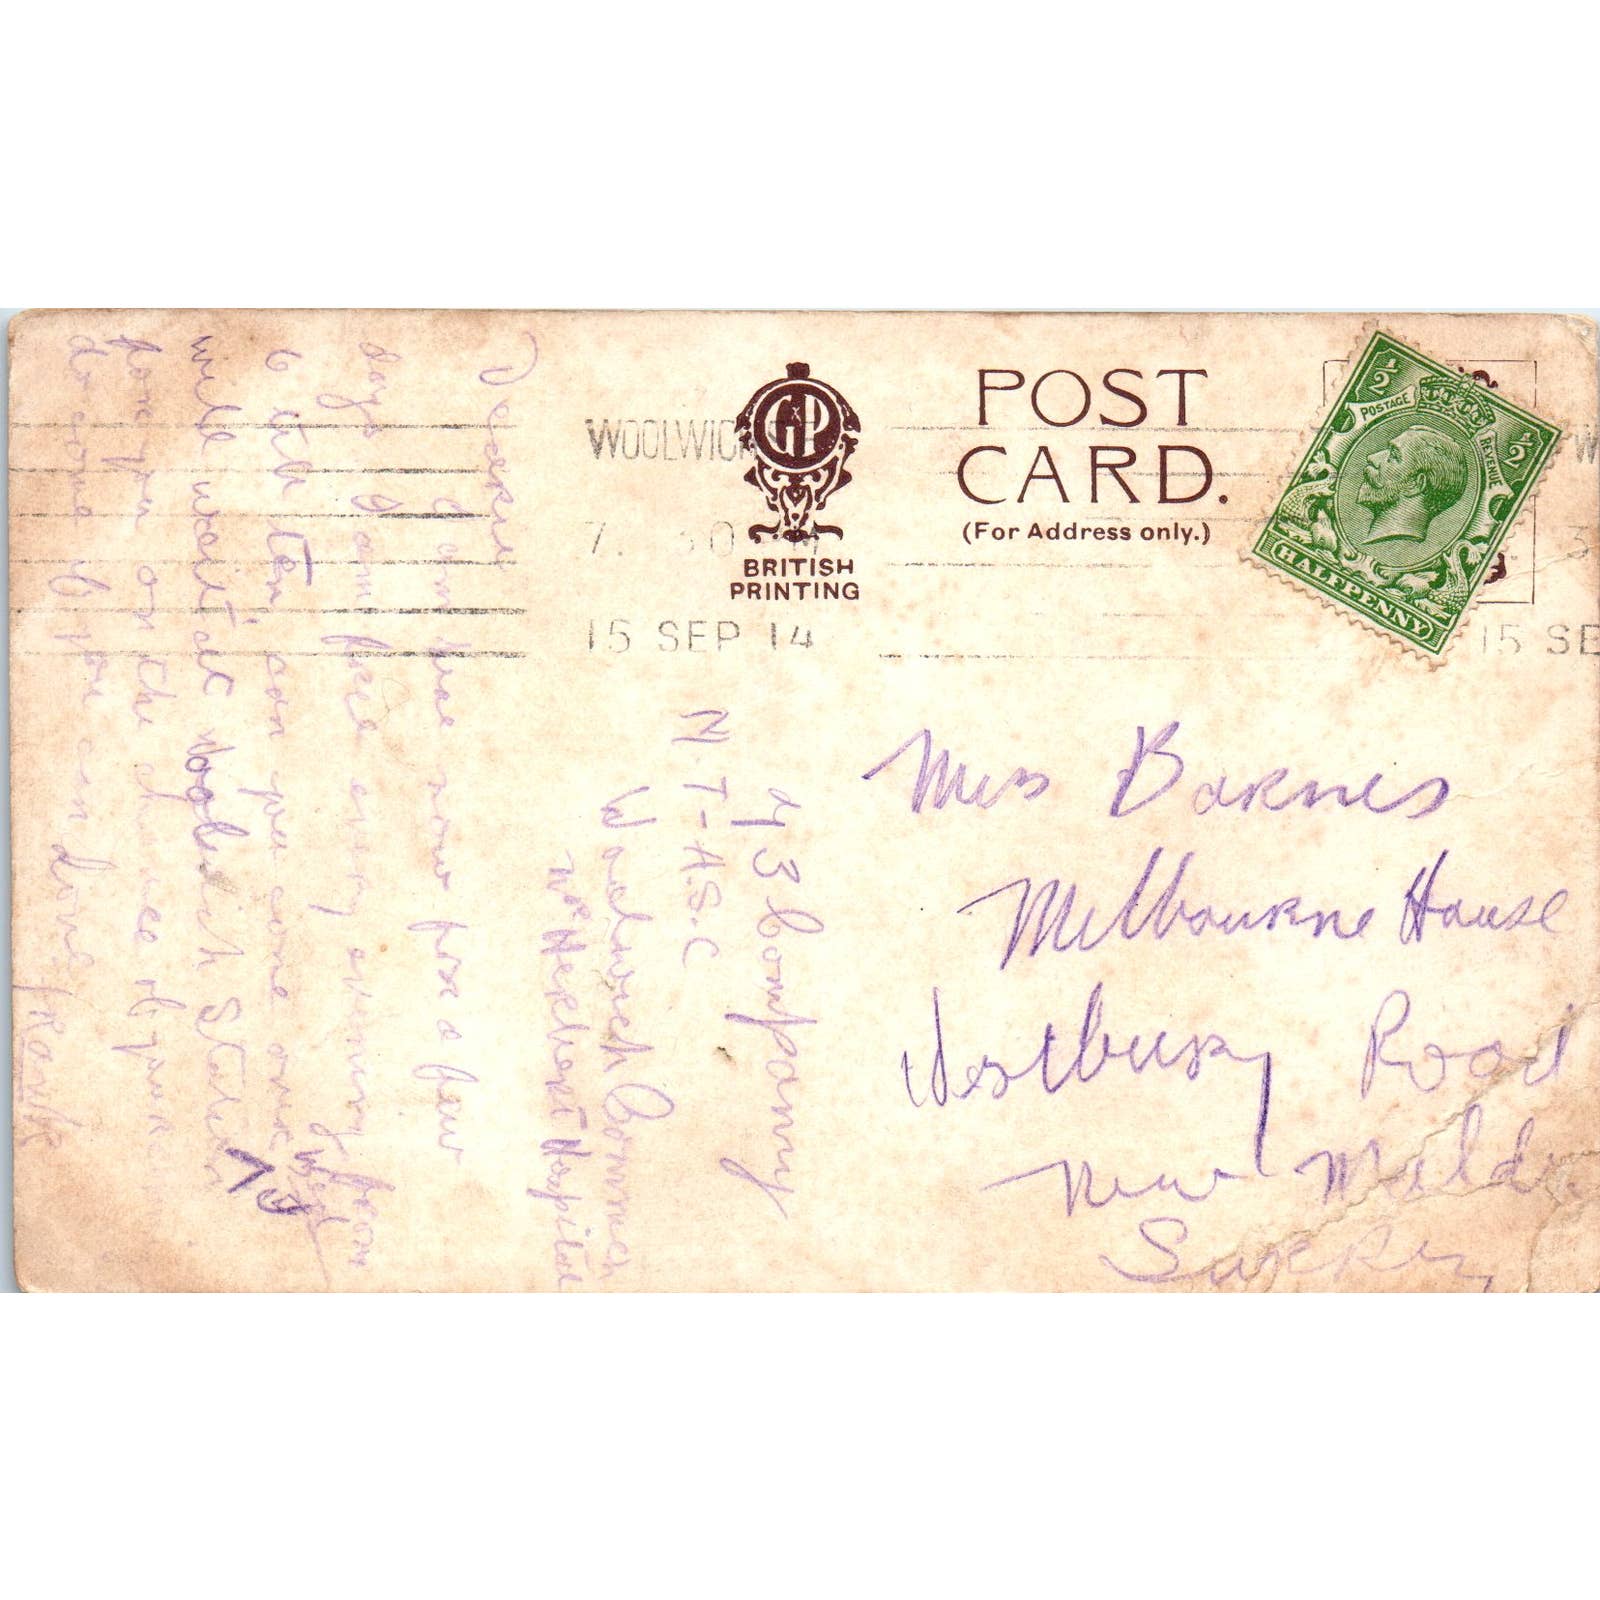 POST
CARD.
(For Address only.)
G P
BRITISH
PRINTING
WOOLWICH
7. 30 PM
15 SEP 14
15 SE
½
½
POSTAGE
REVENUE
HALFPENNY
Miss Barnes
Melbourne House
Westbury Road
New Malden
Surrey
43 Company
N.T-H.S.C
Woolwich Common
Herbert Hospital
Dearie
I am here now for a few
days I am free every evening from
6 till ten, can you come over Wed
will wait at Woolwich Station 7
for you on the chance of your
do come if you can love Frank